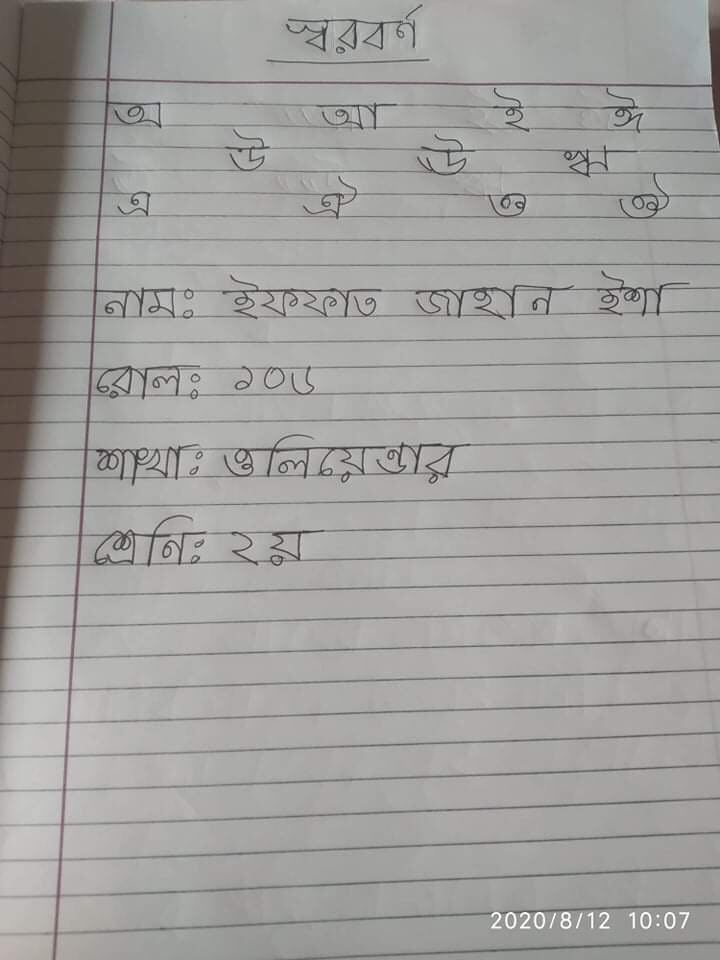 স্বরবর্ণ
অ আ ই ঈ
উ ঊ ঋ
এ ঐ ও ঔ
নামঃ ইফফাত জাহান ইশা
রোলঃ ১০৬
শাখাঃ ওলিয়েন্ডার
শ্রেনিঃ ২য়
2020/8/12 10:07